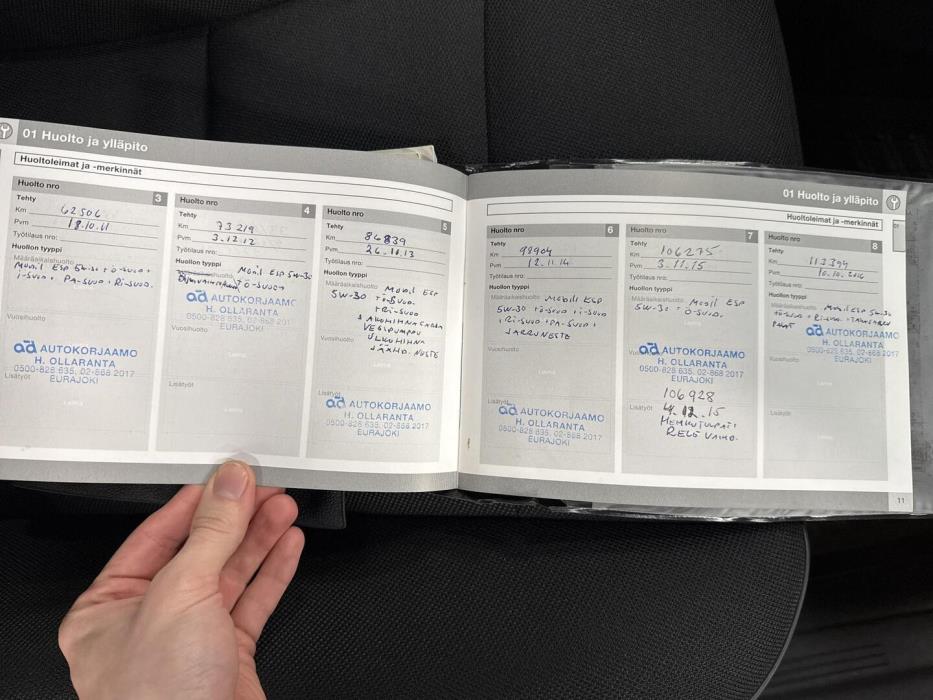 01 Huolto ja ylläpito
Huoltoleimat ja -merkinnät
Huolto nro 3
Tehty
Km 62506
Pvm 18.10.11
Työtilaus nro:
Huollon tyyppi
Määräaikaishuolto
Mobil ESP 5W-30 + ö-suod +
i-suod + PA-suod + Ri-suod.
Vuosihuolto
ad AUTOKORJAAMO
H. OLLARANTA
0500-828 635, 02-868 2017
EURAJOKI
Lisätyöt
Leima
Huolto nro 4
Tehty
Km 73219
Pvm 3.12.12
Työtilaus nro:
Huollon tyyppi
Mobil ESP 5W-30
ö-suod
ad AUTOKORJAAMO
H. OLLARANTA
0500-828 635, 02-868 201
EURAJOKI
Vuosihuolto
Leima
Lisätyöt
Huolto nro 5
Tehty
Km 86839
Pvm 26.11.13
Työtilaus nro:
Huollon tyyppi
Määräaikaishuolto Mobil ESP
5W-30 + ö-suod.
+ Ri-suod
JAKOHIHNA
VESIPUMPPU
Vuosihuolto ULKOHIHNA
JÄÄHD. NESTE
Leima
Lisätyöt
ad AUTOKORJAAMO
H. OLLARANTA
0500-828 635, 02-868 2017
EURAJOKI
01 Huolto ja ylläpito
Huoltoleimat ja -merkinnät
Huolto nro 6
Tehty
Km 98904
Pvm 12.11.14
Työtilaus nro:
Huollon tyyppi
Määräaikaishuolto Mobil ESP
5W-30 + ö-suod + i-suod
+ Ri-suod + PA-suod +
JARRUNESTE
Vuosihuolto
Leima
Lisätyöt
ad AUTOKORJAAMO
H. OLLARANTA
0500-828 635, 02-868 2017
EURAJOKI
Huolto nro 7
Tehty
Km 106275
Pvm 3.11.15
Työtilaus nro:
Huollon tyyppi
Määräaikaishuolto Mobil ESP
5W-30 + ö-suod.
Leima
ad AUTOKORJAAMO
H. OLLARANTA
0500-828 635, 02-868 2017
EURAJOKI
106928
Lisätyöt 4.12.15
HEHKUTULPAT
RELE VAIHD.
Huolto nro 8
Tehty
Km 113394
Pvm 10.10.2016
Työtilaus nro:
Huollon tyyppi
Määräaikaishuolto Mobil ESP 5W-30
ö-suod + Ri-suod +
PALAT
ad AUTOKORJAAMO
H. OLLARANTA
0500-828 635, 02-868 2017
EURAJOKI
Vuosihuolto
Lisätyöt
Leima
11